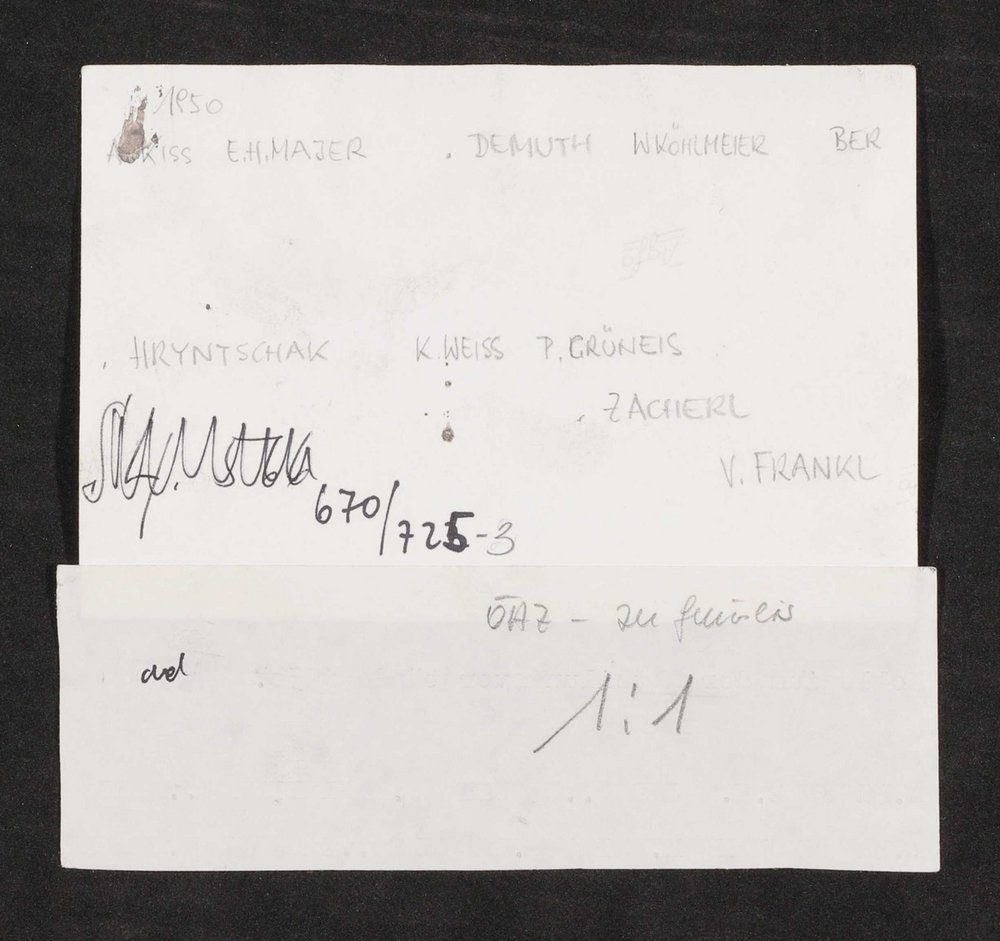 1950
A. KISS E.H. MAJER . DEMUTH W KÖHLMEIER BER
. HRYNTSCHAK K. WEISS P. GRÜNEIS
. ZACHERL
V. FRANKL
670/725-3
ÖAZ - zu
ad
1:1